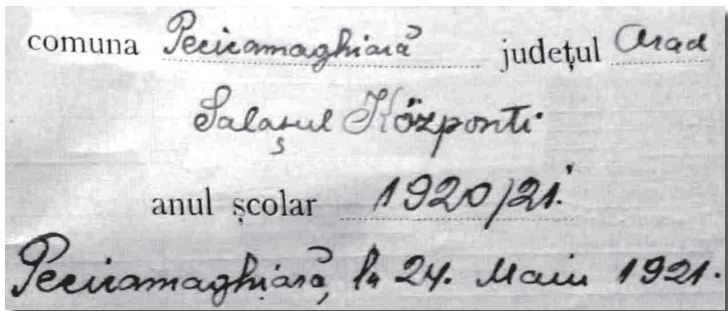 comuna Pecicamaghiară județul Arad
Salașul Központi
anul școlar 1920/21.
Pecicamaghiară, la 24. Maiu 1921.